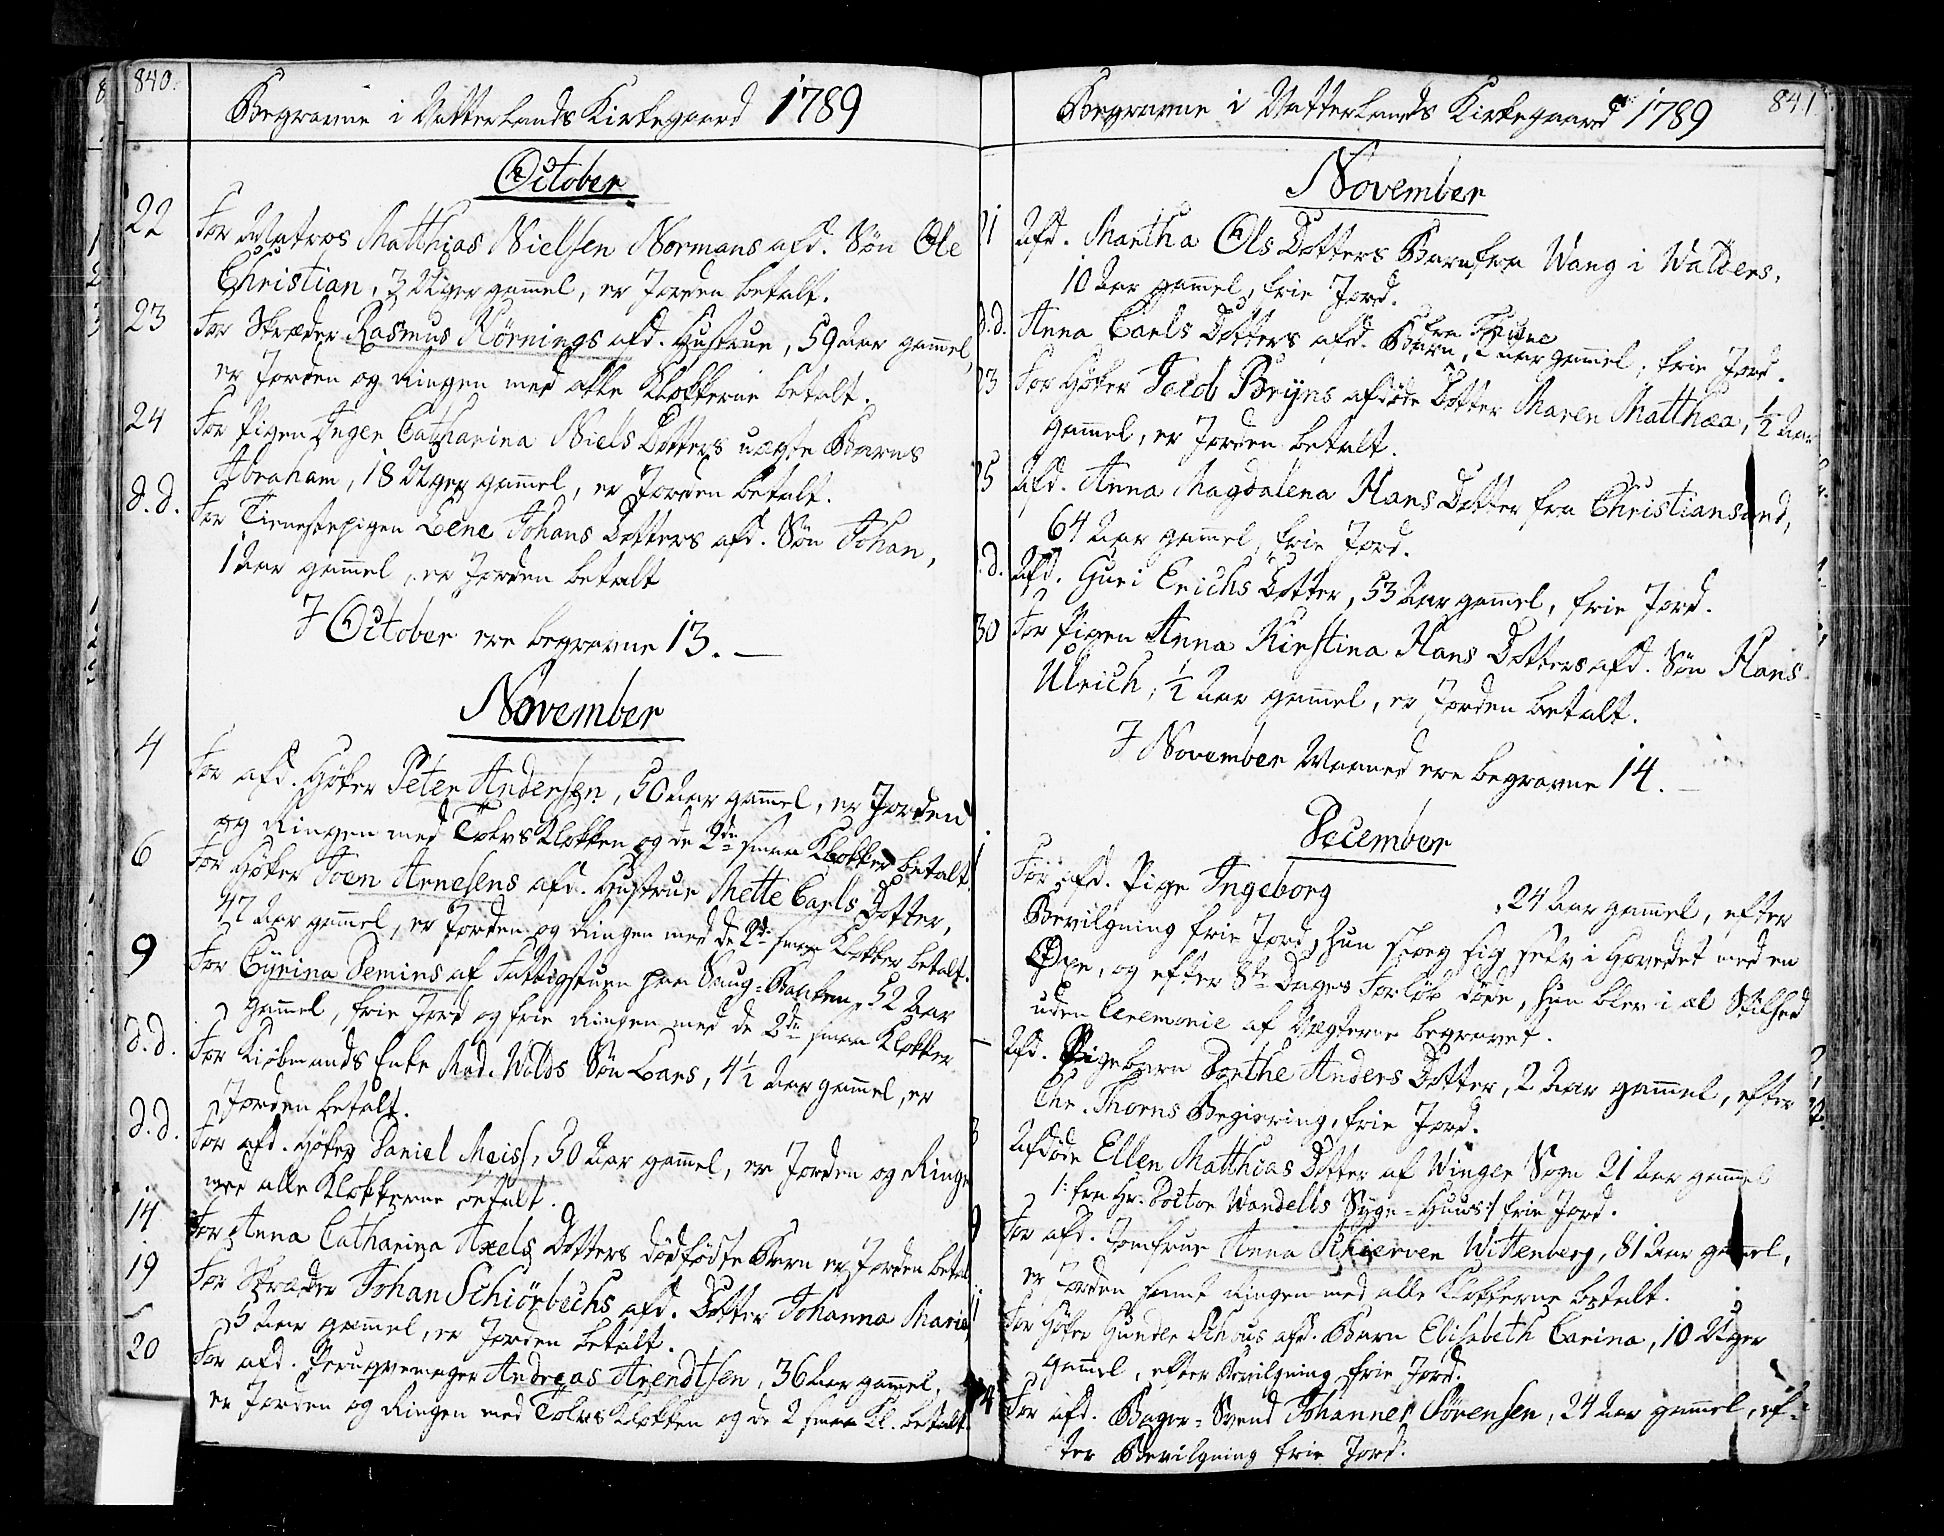 840.
Begravne i Vatterlands Kirkegaard 1789
October
22 For Matros Matthias Nielsen Normans afd. Søn Ole
Christian, 3 Uger gammel, er Jorden betalt.
23 For Skræder Rasmus Hörnings afd. Hustrue, 59 Aar gammel,
er Jorden og Ringen med alle Klokkerne betalt.
24 For Pigen Inger Catharina Niels Dotters uægte Barns
Abraham, 18 Uger gammel, er Jorden betalt.
d.d. For Tienestepigen Lene Johans Dotters afd. Søn Johan,
1 Aar gammel, er Jorden betalt
I October ere begravne 13.
November
4 For afd. Höker Peter Andersen, 50 Aar gammel, er Jorden
og Ringen med Tolvs Klokken og de 2de smaa Klokker betalt.
6 For Höker Joen Arnesens afd. Hustrue Mette Carls Dotter,
47 Aar gammel, er Jorden og Ringen med de 2de smaa Klokker betalt.
9 For Cyrina Demins af Fattigstuen paa Saug-Banken, 52 Aar
gammel, frie Jord og frie Ringen med de 2de smaa Klokker
d.d. For Kiøbmands Enke Mad. Wolds Søn Lars, 4½ Aar gammel, er
Jorden betalt.
d.d. For afd. Höker Daniel Meiss, 50 Aar gammel, er Jorden og Ringe
med alle Klokkerne betalt.
14 For Anna Catharina Axels Dotters dödfödte Barn er Jorden betalt
19 For Skræder Johan Schiörbechs afd. Dotter Johanna Maria
5 Aar gammel, er Jorden betalt.
20 For afd. Peruqvemager Andreas Arendtsen, 36 Aar gammel,
er Jorden og Ringen med Tolvs Klokken og de 2 smaa Kl. betalt.
841
Begravne i Vatterlands Kirkegaard 1789
November
21 Afd. Martha Ols Dotters Barn fra Wang i Walders,
10 Aar gammel, frie Jord.
d.d. Anna Carls Dotters afd. Barn, 2 Aar gammel, frie Jord.
23 For Höker Jacob Bryns afdöde Dotter Maren Matthea, ½ Aar
gammel, er Jorden betalt.
25 Afd. Anna Magdalena Hans Dotter fra Christiansand,
64 Aar gammel, frie Jord.
d.d. Afd. Guri Erichs Dotter, 53 Aar gammel, frie Jord.
30 For Pigen Anna Kirstina Hans Dotters afd. Søn Hans
Ulrich, ½ Aar gammel, er Jorden betalt.
I November Maaned ere begravne 14.
December
1 For afd. Pige Ingeborg , 24 Aar gammel, efter
Bevilgning frie Jord, hun sloeg sig selv i Hovedet med en
Öxe, og efter 8te Dages Forløb döde, hun blev i al Stilhed
uden Ceremonie af Vægterne begravet.
Afd. Pigebarn Dorthe Anders Dotter, 2 Aar gammel, efter
Chr. Thorns Begiering, frie Jord.
3 Afdöde Ellen Matthias Dotter af Winger Sogn 21 Aar gammel
/: fra Hr. Doctor Wandells Syge-Huus :/ frie Jord.
9 For afd. Jomfrue Anna Schierven Wittenberg, 81 Aar gammel,
er Jorden samt Ringen med alle Klokkerne betalt.
11 For Höker Gunder Schous afd. Barn Elisabeth Carina, 10 Uger
gammel, efter Bevilgning frie Jord.
14 For afd. Bager-Svend Johannes Sörensen, 24 Aar gammel, ef-
ter Bevilgning frie Jord.